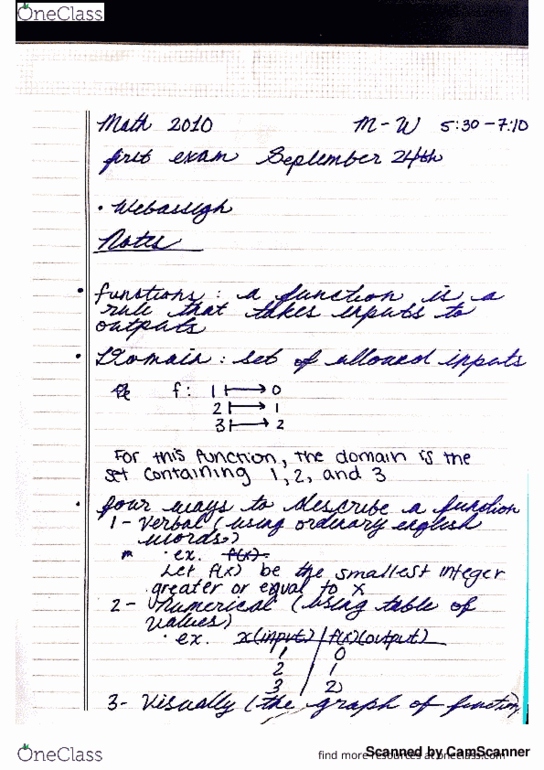 OneClass
Math 2010 M-W 5:30-7:10
first exam September 24th
• Webassigh
Notes
• functions : a function is a
rule that takes inputs to
outputs
• Domain : set of allowed inputs
f: 1 ↦ 0
2 ↦ 1
3 ↦ 2
For this function, the domain is the
set containing 1, 2, and 3
• four ways to describe a function
1- Verbal (using ordinary english
words)
• ex. f(x)=
Let f(x) be the smallest integer
greater or equal to x
2- Numerical (using table of
values)
• ex. x(input) | f(x)(output)
1 0
2 1
3 2
3- Visually (the graph of function)
OneClass
find more resources at oneclass.com
Scanned by CamScanner